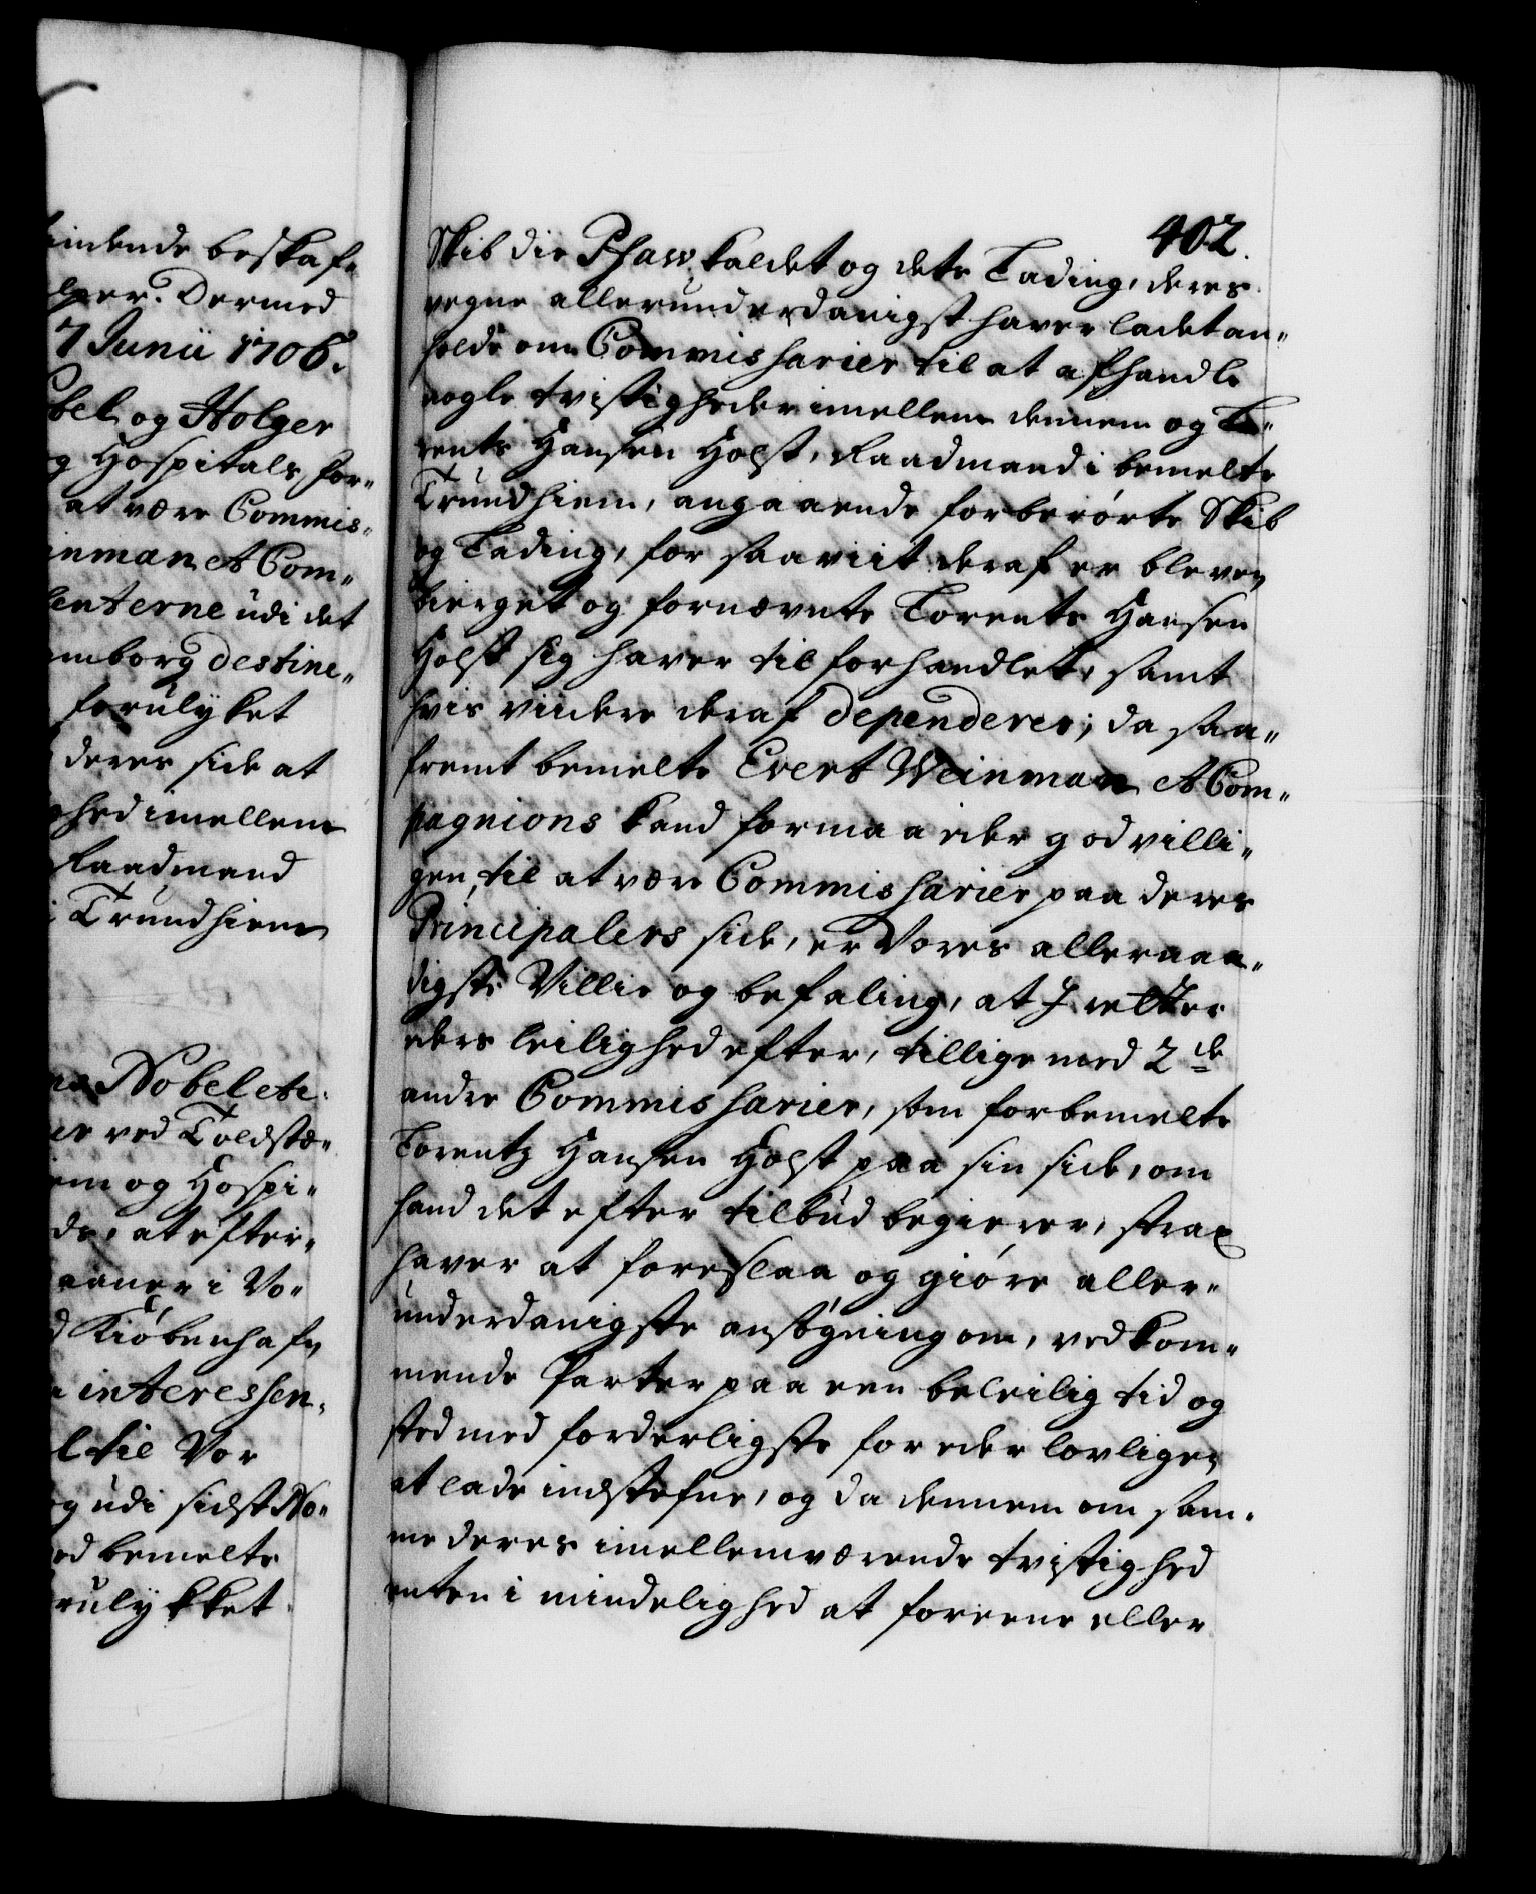 indende beskaf-
lger. Dermed
7 Junii 1706.
bel og Holger
g Hospitals for-
at være Commis-
inman & Com-
lenterne udi det
mborg destine-
forulyket
deres side at
ghed imellem
Raadmand
i Trundhiem
Nobel etc.
er ved Toldstæ-
em og Hospi-
ds, at efter-
aaner i Vo-
d Kiöbenhafn
interessen-
l til Vor
g udi sidst No-
ed bemelte
rulykket
402.
Skib die Pfaw kaldet og dets Lading, deres
vegne allerunderdanigst haver ladet an-
holde om Commissarier til at afhandle
nogle tvistigheder imellem dennem og Lo-
rents Hansen Holst, Raadmand i bemelte
Trundhiem, angaaende forberörte Skib
og Lading, for saaviit deraf er bleven
bierget og fornævnte Lorents Hansen
Holst sig haver tilforhandlet, samt
hvis viidere deraf dependerer; da saa-
fremt bemelte Evert Weinman & Com-
pagnions kand formaa eder godvilli-
gen, til at være Commissarier paa deres
Principalers side, er Vores allernaa-
digste Villie og befaling, at I retter
eders leilighed efter, tillige med 2de
andre Commissarier, som forbemelte
Lorentz Hansen Holst paa sin side, om
hand det efter tilbud begierer, strax
haver at foreslaa og giöre aller-
underdanigste ansögning om, vedkom-
mende Parter paa een beleilig tid og
sted med forderligste for eder lovligen
at lade indstefne, og da dennem om sam-
me deres imellemværende tvistighed
enten i mindelighed at foreene eller